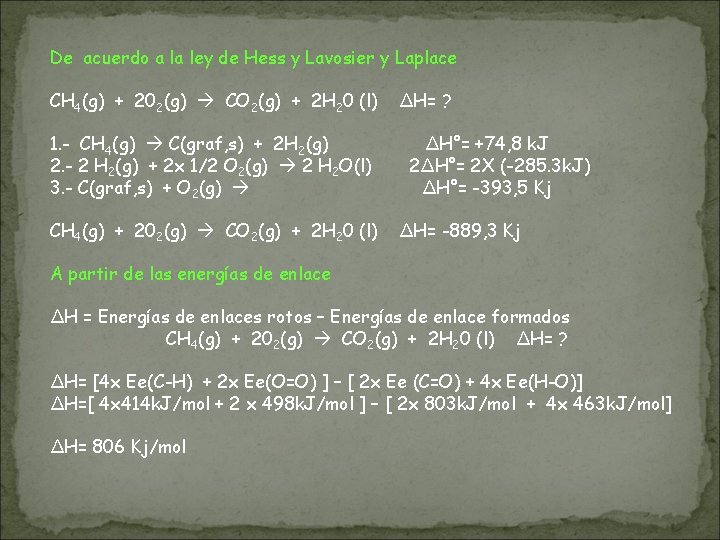 De acuerdo a la ley de Hess y Lavosier y Laplace
CH4(g) + 202(g) → CO2(g) + 2H20 (l) ΔH= ?
1.- CH4(g) → C(graf,s) + 2H2(g) ΔH°= +74,8 kJ
2.- 2 H2(g) + 2x 1/2 O2(g) → 2 H2O(l) 2ΔH°= 2X (-285.3kJ)
3.- C(graf,s) + O2(g) → ΔH°= -393,5 Kj
CH4(g) + 202(g) → CO2(g) + 2H20 (l) ΔH= -889,3 Kj
A partir de las energías de enlace
ΔH = Energías de enlaces rotos – Energías de enlace formados
CH4(g) + 202(g) → CO2(g) + 2H20 (l) ΔH= ?
ΔH= [4x Ee(C-H) + 2x Ee(O=O) ] – [ 2x Ee (C=O) + 4x Ee(H-O)]
ΔH=[ 4x414kJ/mol + 2 x 498kJ/mol ] – [ 2x 803kJ/mol + 4x 463kJ/mol]
ΔH= 806 Kj/mol